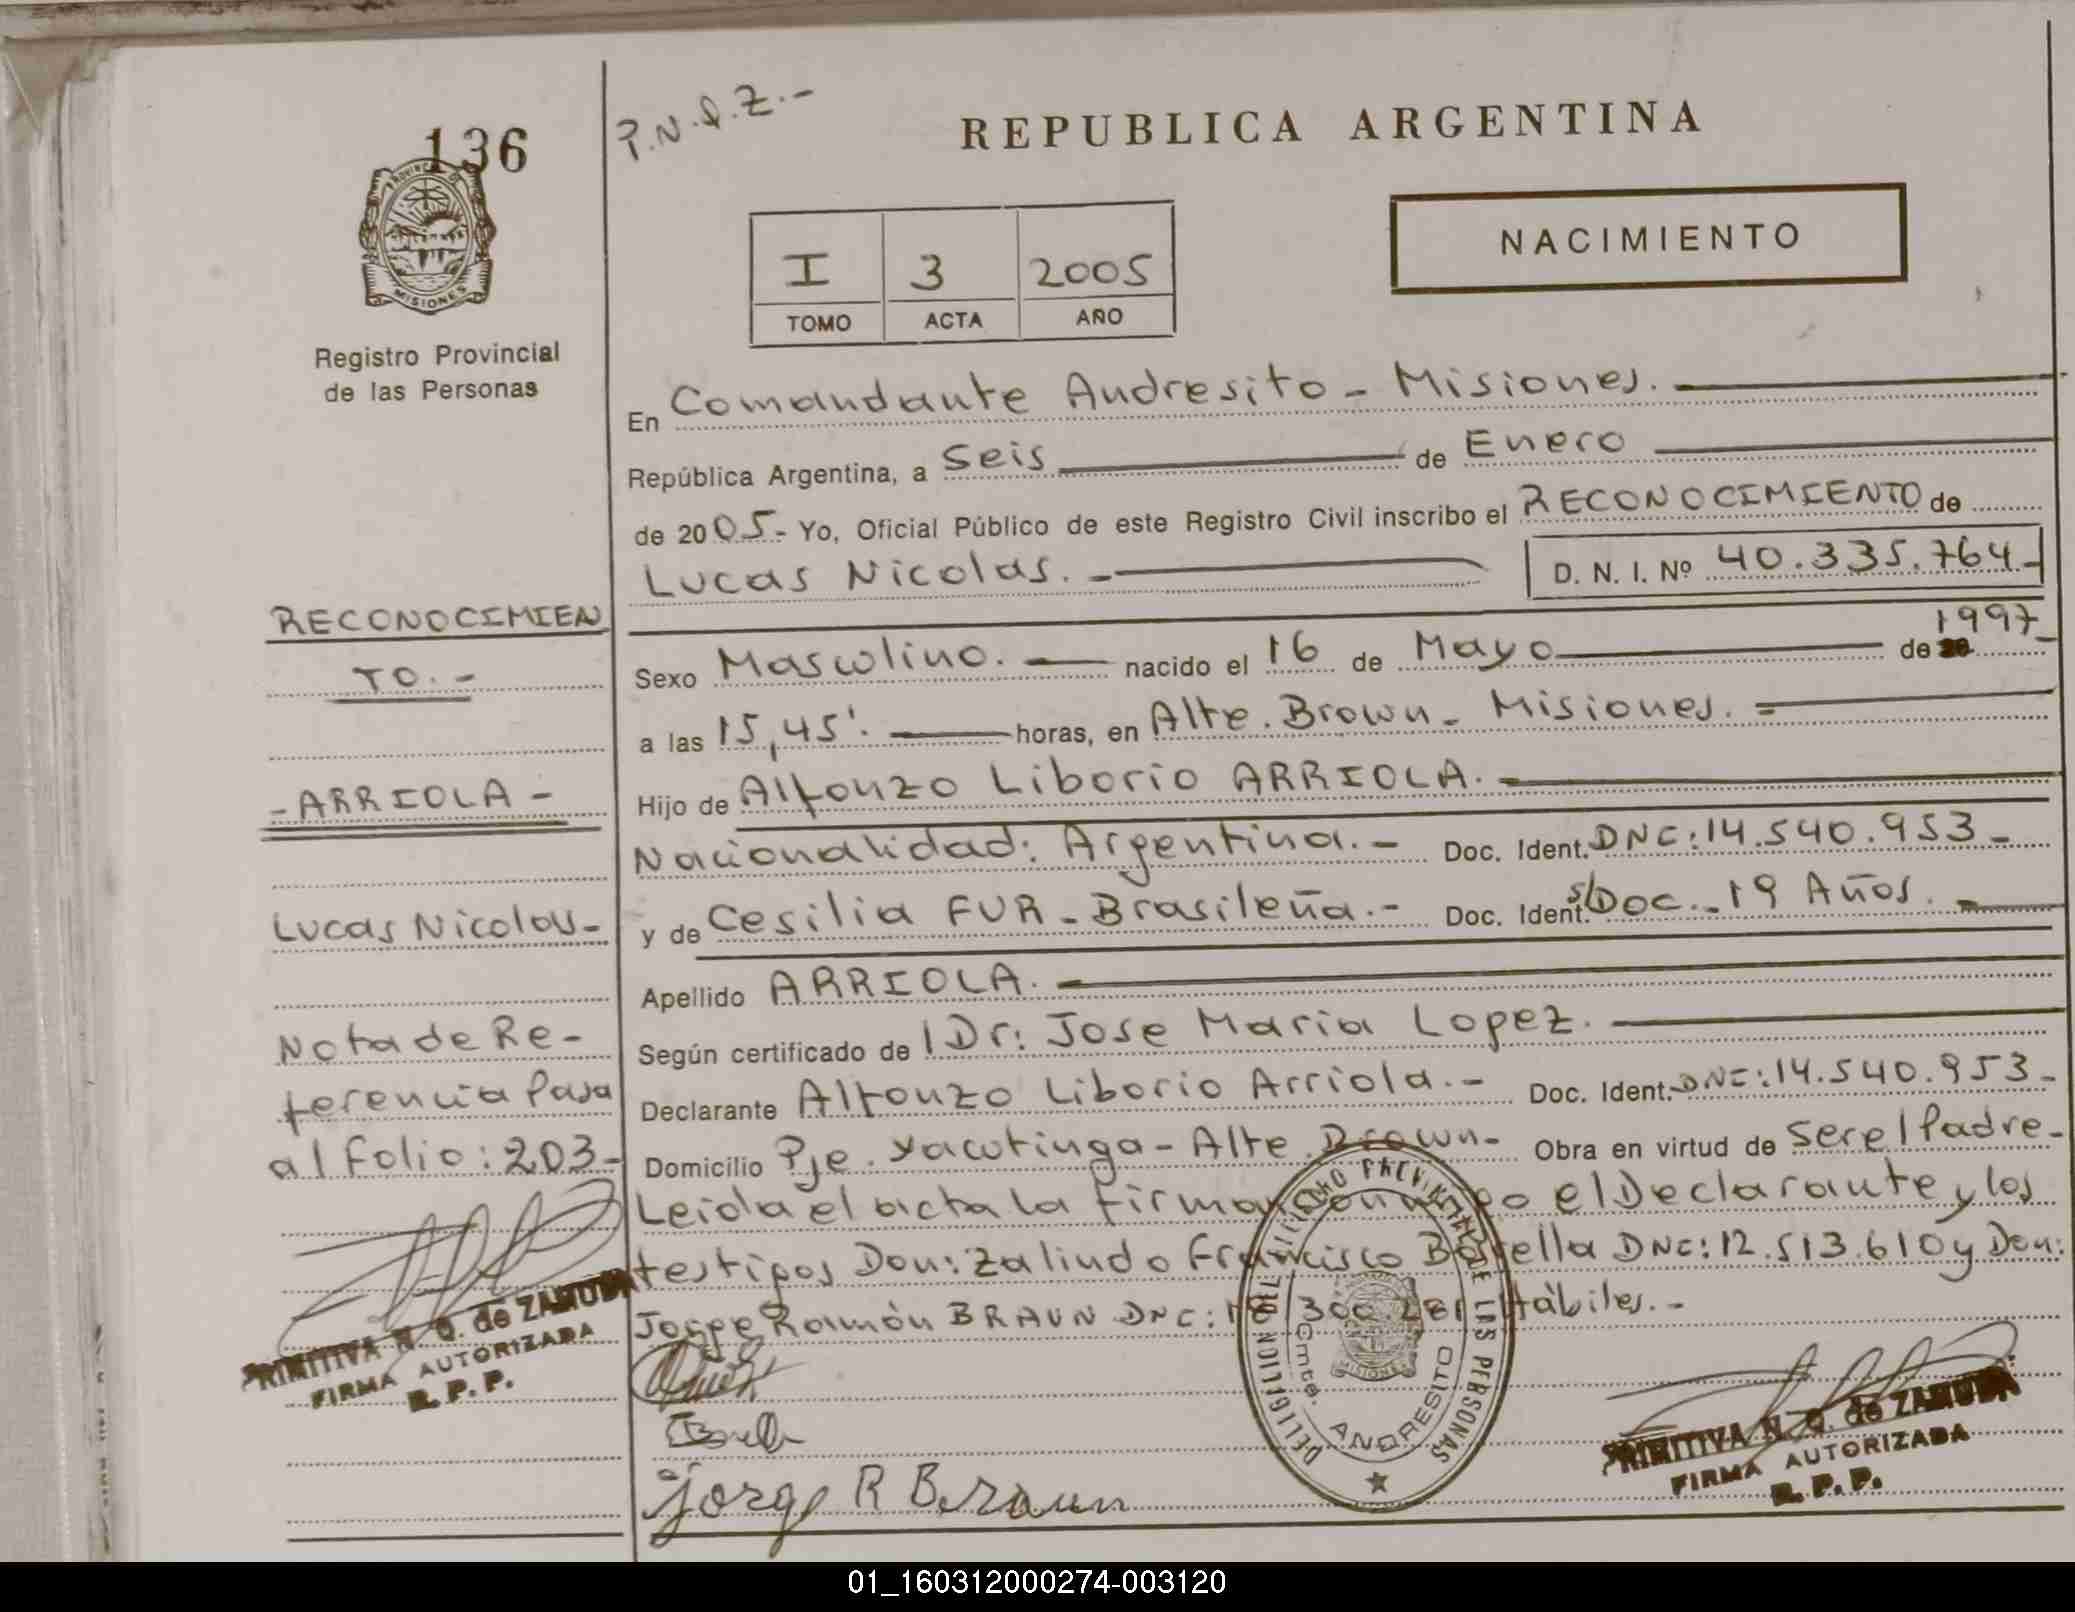 136
P.N.Q.Z.-
REPUBLICA ARGENTINA
PROVINCIA DE
MISIONES
Registro Provincial
de las Personas
I 3 2005
TOMO ACTA AÑO
NACIMIENTO
En Comandante Andresito - Misiones.
República Argentina, a Seis de Enero
de 2005.- Yo, Oficial Público de este Registro Civil inscribo el RECONOCIMIENTO de
Lucas Nicolas. - D. N. I. Nº 40.335.764-
Sexo Masculino. - nacido el 16 de Mayo de 1997-
a las 15,45'. horas, en Alte. Brown - Misiones. =
Hijo de Alfonzo Liborio ARRIOLA. -
Nacionalidad: Argentina. - Doc. Ident. DNI: 14.540.953 -
y de Cesilia FUR - Brasileña. - Doc. Ident. s/Doc. - 19 Años. -
Apellido ARRIOLA. -
Según certificado de Dr: Jose Maria Lopez.
Declarante Alfonzo Liborio Arriola. - Doc. Ident. DNI: 14.540.953 -
Domicilio Pje. Yacutinga - Alte. Brown - Obra en virtud de ser el Padre -
Leida el acta la firman conmigo el Declarante y los
testigos Don: Zalindo Francisco DNI: 12.513.610 y Don:
Jorge Ramón BRAUN DNI: 300.281 Hábiles. -
Jorge R Braun
RECONOCIMIEN
TO. -
- ARRIOLA -
Lucas Nicolas -
Nota de Re-
ferencia Pasa
al folio: 203 -
PRIMITIVA N. Q. de ZAMUDIA
FIRMA AUTORIZADA
R. P. P.
DELEGACION DEL REGISTRO PROVINCIAL DE LAS PERSONAS
Comte. ANDRESITO
MISIONES
PRIMITIVA N. Q. de ZAMUDIA
FIRMA AUTORIZADA
R. P. P.
01_160312000274-003120